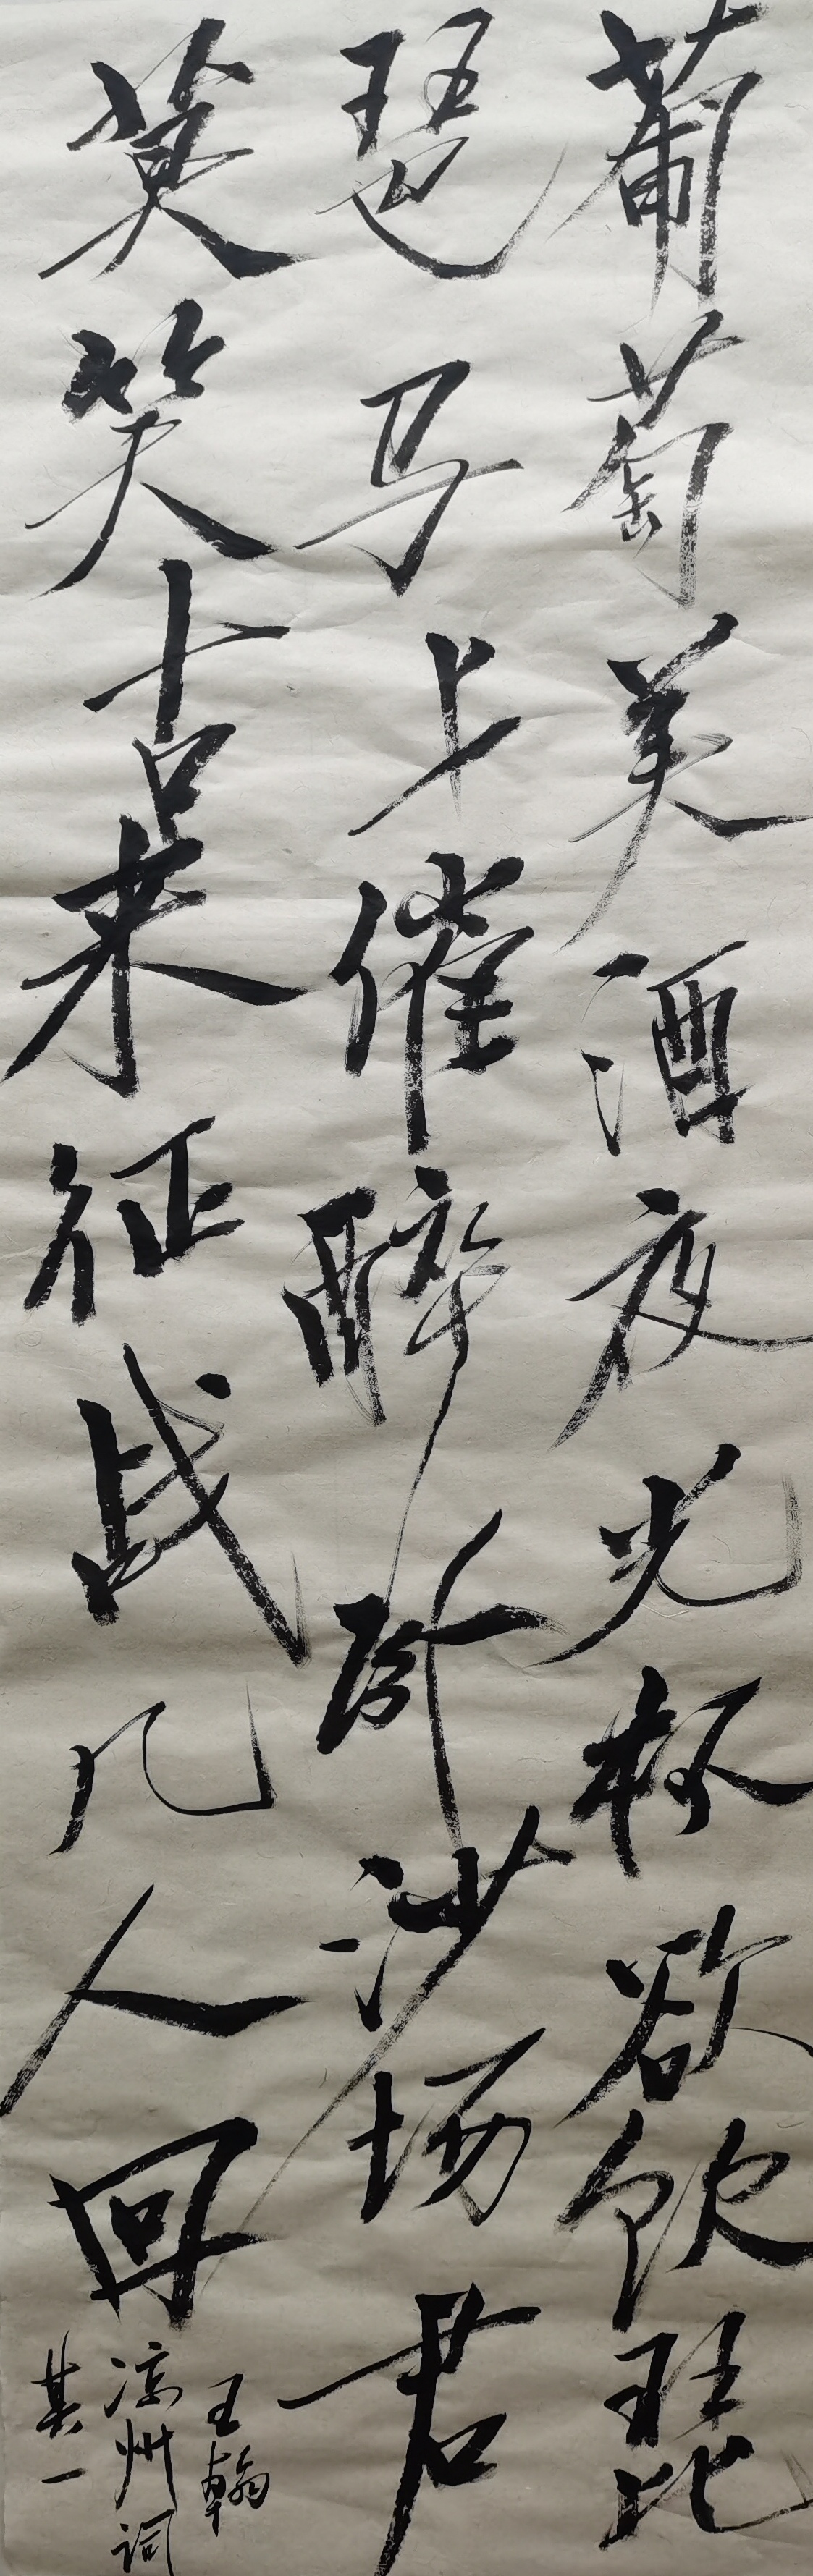 葡萄美酒夜光杯欲饮琵
琶马上催醉卧沙场君
莫笑古来征战几人回
王翰
凉州词
其一